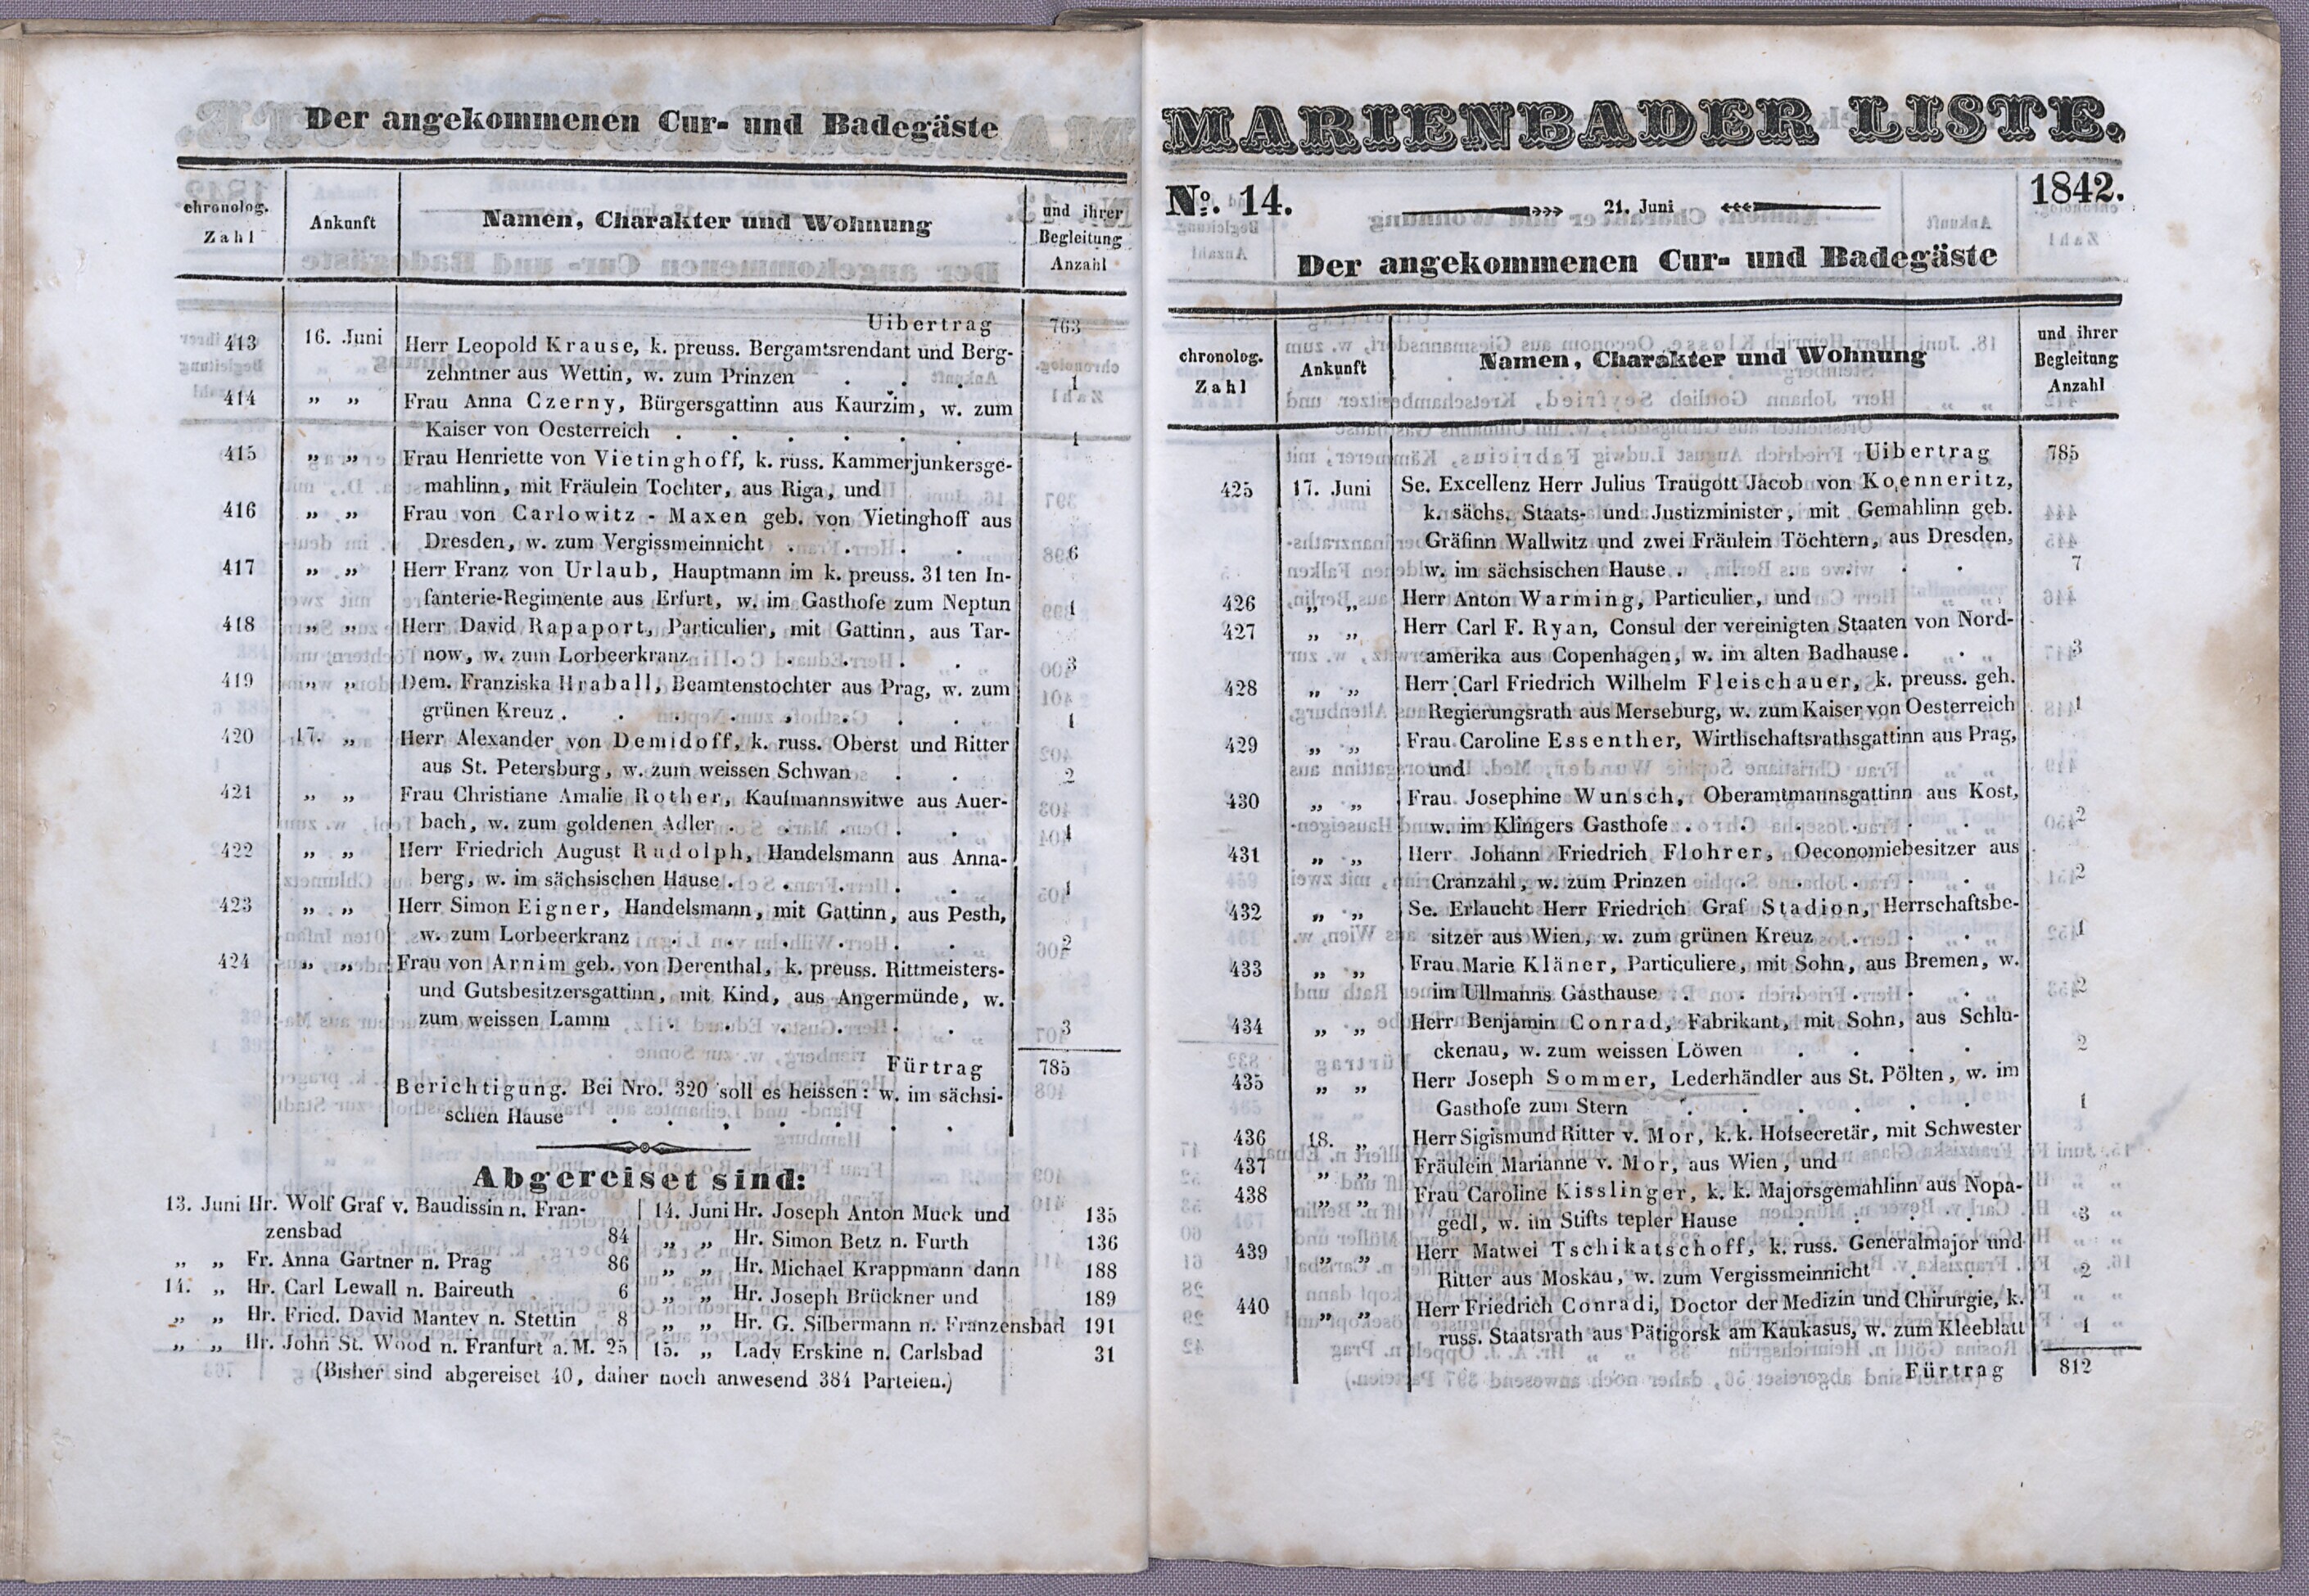 Der angekommenen Cur- und Badegäste
chronolog. Zahl
Ankunft
Namen, Charakter und Wohnung
und ihrer Begleitung Anzahl
Uibertrag 763
413 16. Juni Herr Leopold Krause, k. preuss. Bergamtsrendant und Berg-
zehntner aus Wettin, w. zum Prinzen . . . 1
414 „ „ Frau Anna Czerny, Bürgersgattinn aus Kauržim, w. zum
Kaiser von Oesterreich . . . . . . 1
415 „ „ Frau Henriette von Vietinghoff, k. russ. Kammerjunkersge-
mahlinn, mit Fräulein Tochter, aus Riga, und
416 „ „ Frau von Carlowitz - Maxen geb. von Vietinghoff aus
Dresden, w. zum Vergissmeinnicht . . . . 6
417 „ „ Herr Franz von Urlaub, Hauptmann im k. preuss. 31 ten In-
fanterie-Regimente aus Erfurt, w. im Gasthofe zum Neptun 1
418 „ „ Herr David Rapaport, Particulier, mit Gattinn, aus Tar-
now, w. zum Lorbeerkranz . . . . . 3
419 „ „ Dem. Franziska Hraball, Beamtenstochter aus Prag, w. zum
grünen Kreuz . . . . . . . . 1
420 17. „ Herr Alexander von Demidoff, k. russ. Oberst und Ritter
aus St. Petersburg, w. zum weissen Schwan . . 2
421 „ „ Frau Christiane Amalie Rother, Kaufmannswitwe aus Auer-
bach, w. zum goldenen Adler . . . . . 1
422 „ „ Herr Friedrich August Rudolph, Handelsmann aus Anna-
berg, w. im sächsischen Hause . . . . . 1
423 „ „ Herr Simon Eigner, Handelsmann, mit Gattinn, aus Pesth,
w. zum Lorbeerkranz . . . . . . 2
424 „ „ Frau von Arnim geb. von Derenthal, k. preuss. Rittmeisters-
und Gutsbesitzersgattinn, mit Kind, aus Angermünde, w.
zum weissen Lamm . . . . . . 3
Fürtrag 785
Berichtigung. Bei Nro. 320 soll es heissen: w. im sächsi-
schen Hause . . . . . . .
Abgereiset sind:
13. Juni Hr. Wolf Graf v. Baudissin n. Fran-
zensbad 84
„ „ Fr. Anna Gartner n. Prag 86
14. „ Hr. Carl Lewall n. Baireuth 6
„ „ Hr. Fried. David Mantey n. Stettin 8
„ „ Hr. John St. Wood n. Franfurt a. M. 25
14. Juni Hr. Joseph Anton Muck und 135
„ „ Hr. Simon Betz n. Furth 136
„ „ Hr. Michael Krappmann dann 188
„ „ Hr. Joseph Brückner und 189
„ „ Hr. G. Silbermann n. Franzensbad 191
15. „ Lady Erskine n. Carlsbad 31
(Bisher sind abgereiset 40, daher noch anwesend 384 Parteien.)
MARIENBADER LISTE.
No. 14. 21. Juni 1842.
Der angekommenen Cur- und Badegäste
chronolog. Zahl
Ankunft
Namen, Charakter und Wohnung
und ihrer Begleitung Anzahl
Uibertrag 785
425 17. Juni Se. Excellenz Herr Julius Traugott Jacob von Koenneritz,
k. sächs. Staats- und Justizminister, mit Gemahlinn geb.
Gräfinn Wallwitz und zwei Fräulein Töchtern, aus Dresden,
w. im sächsischen Hause . . . . . . 7
426 „ „ Herr Anton Warming, Particulier, und
427 „ „ Herr Carl F. Ryan, Consul der vereinigten Staaten von Nord-
amerika aus Copenhagen, w. im alten Badhause . . 3
428 „ „ Herr Carl Friedrich Wilhelm Fleischauer, k. preuss. geh.
Regierungsrath aus Merseburg, w. zum Kaiser von Oesterreich 1
429 „ „ Frau Caroline Essenther, Wirthschaftsrathsgattinn aus Prag,
und
430 „ „ Frau Josephine Wunsch, Oberamtmannsgattinn aus Kost,
w. im Klingers Gasthofe . . . . . . 2
431 „ „ Herr Johann Friedrich Flohrer, Oeconomiebesitzer aus
Cranzahl, w. zum Prinzen . . . . . 2
432 „ „ Se. Erlaucht Herr Friedrich Graf Stadion, Herrschaftsbe-
sitzer aus Wien, w. zum grünen Kreuz . . . 1
433 „ „ Frau Marie Kläner, Particuliere, mit Sohn, aus Bremen, w.
im Ullmanns Gasthause . . . . . . 2
434 „ „ Herr Benjamin Conrad, Fabrikant, mit Sohn, aus Schlu-
ckenau, w. zum weissen Löwen . . . . 2
435 „ „ Herr Joseph Sommer, Lederhändler aus St. Pölten, w. im
Gasthofe zum Stern . . . . . . 1
436 18. „ Herr Sigismund Ritter v. Mor, k. k. Hofsecretär, mit Schwester
437 „ „ Fräulein Marianne v. Mor, aus Wien, und
438 „ „ Frau Caroline Kisslinger, k. k. Majorsgemahlinn aus Nopa-
gedl, w. im Stifts tepler Hause . . . . 3
439 „ „ Herr Matwei Tschikatschoff, k. russ. Generalmajor und
Ritter aus Moskau, w. zum Vergissmeinnicht . . 2
440 „ „ Herr Friedrich Conradi, Doctor der Medizin und Chirurgie, k.
russ. Staatsrath aus Pätigorsk am Kaukasus, w. zum Kleeblatt 1
Fürtrag 812